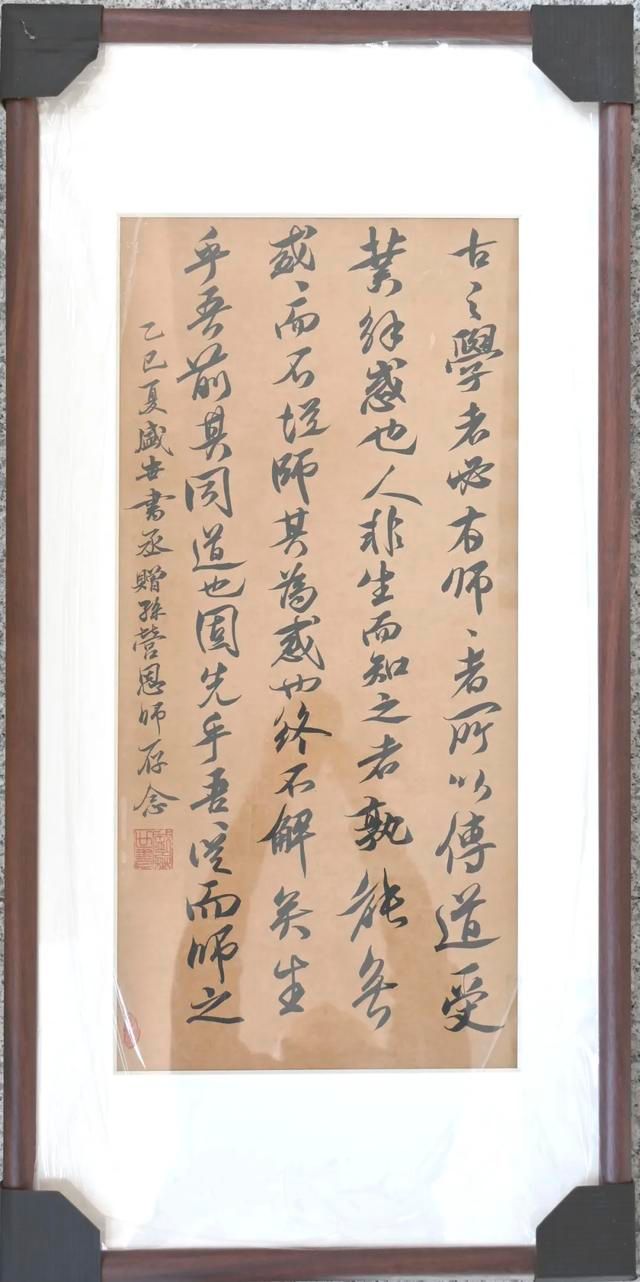 古之學者必有師、者所以傳道受
業解惑也人非生而知之者孰能無
惑、而不從師其為惑也終不解矣生
乎吾前其聞道也固先乎吾、從而師之
乙巳夏盛世書丞贈孫營恩師存念